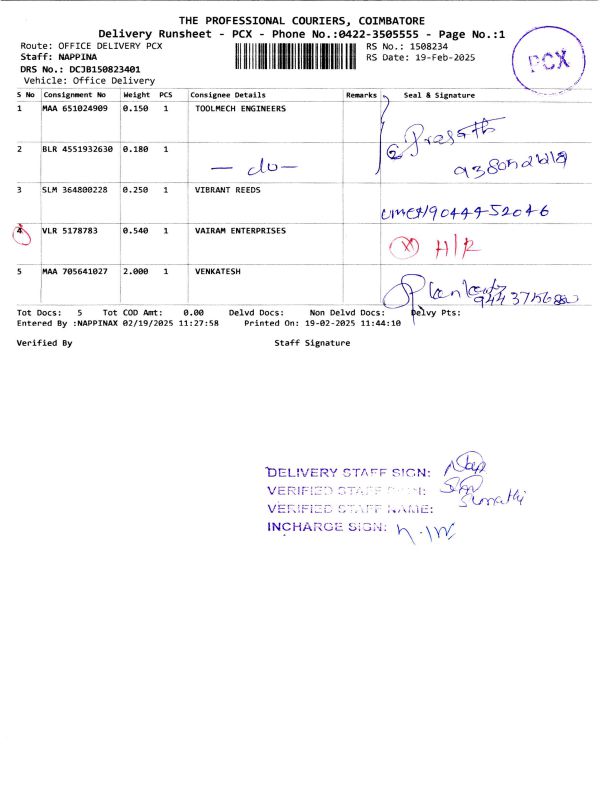 THE PROFESSIONAL COURIERS, COIMBATORE
Delivery Runsheet - PCX - Phone No.:0422-3505555 - Page No.:1
Route: OFFICE DELIVERY PCX
RS No.: 1508234
Staff: NAPPINA
RS Date: 19-Feb-2025
DRS No.: DCJB150823401
Vehicle: Office Delivery
PCX
S No Consignment No Weight PCS Consignee Details Remarks Seal & Signature
1 MAA 651024909 0.150 1 TOOLMECH ENGINEERS
2 BLR 4551932630 0.180 1 — do —
3 SLM 364800228 0.250 1 VIBRANT REEDS
9044452046
4 VLR 5178783 0.540 1 VAIRAM ENTERPRISES
H/R
5 MAA 705641027 2.000 1 VENKATESH
Tot Docs: 5 Tot COD Amt: 0.00 Delvd Docs: Non Delvd Docs: Delvy Pts:
Entered By :NAPPINAX 02/19/2025 11:27:58 Printed On: 19-02-2025 11:44:10
Verified By Staff Signature
DELIVERY STAFF SIGN:
VERIFIED STAFF SIGN:
VERIFIED STAFF NAME: Sumathi
INCHARGE SIGN: